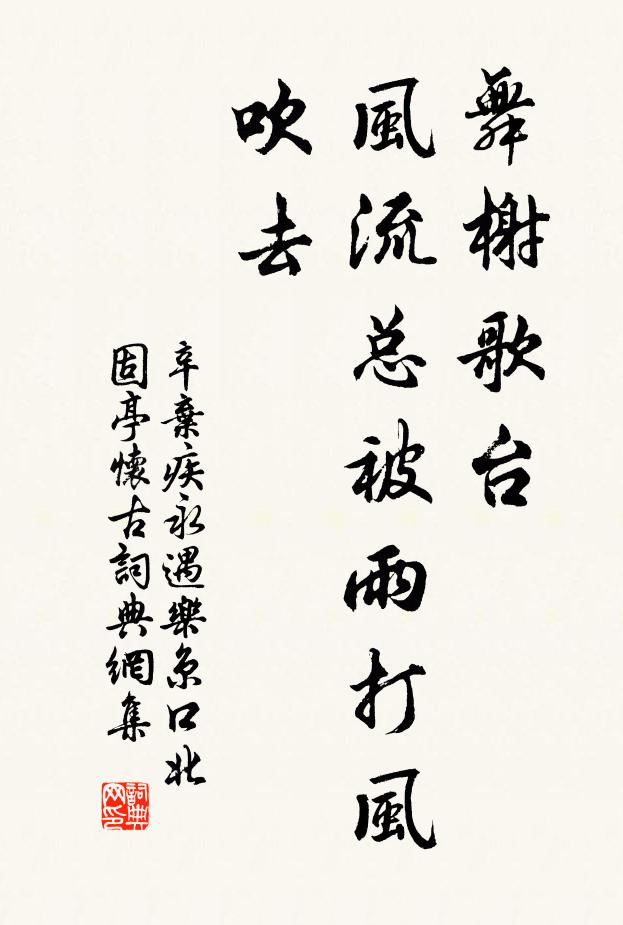 舞榭歌台
風流总被雨打風
吹去
辛棄疾永遇樂京口北
固亭懷古詞典網集
詞典
网印